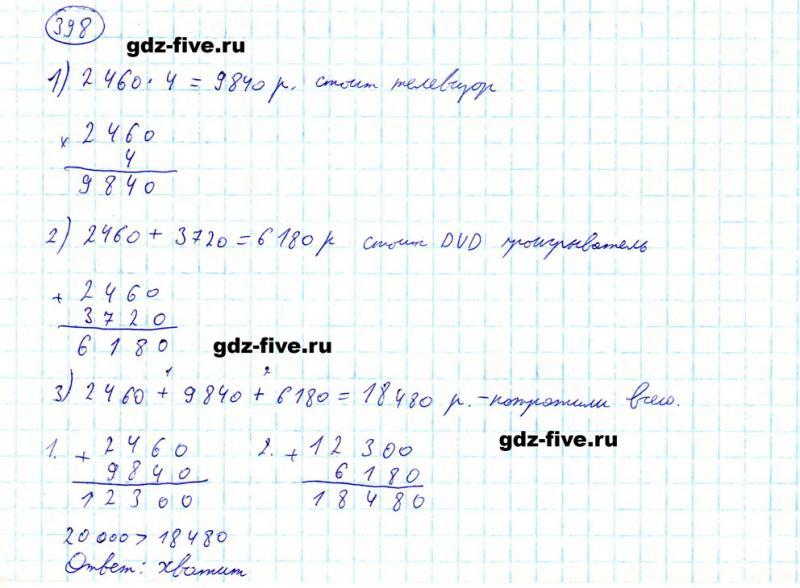 398
gdz-five.ru
1) 2460 · 4 = 9840 р. стоит телевизор
× 2460
4
9840
2) 2460 + 3720 = 6180 р стоит DVD проигрыватель
+ 2460
3720
6180
gdz-five.ru
1 2
3) 2460 + 9840 + 6180 = 18480 р. - потратили всего.
gdz-five.ru
1. + 2460
9840
12300
2. + 12300
6180
18480
20000 > 18480
Ответ: хватит